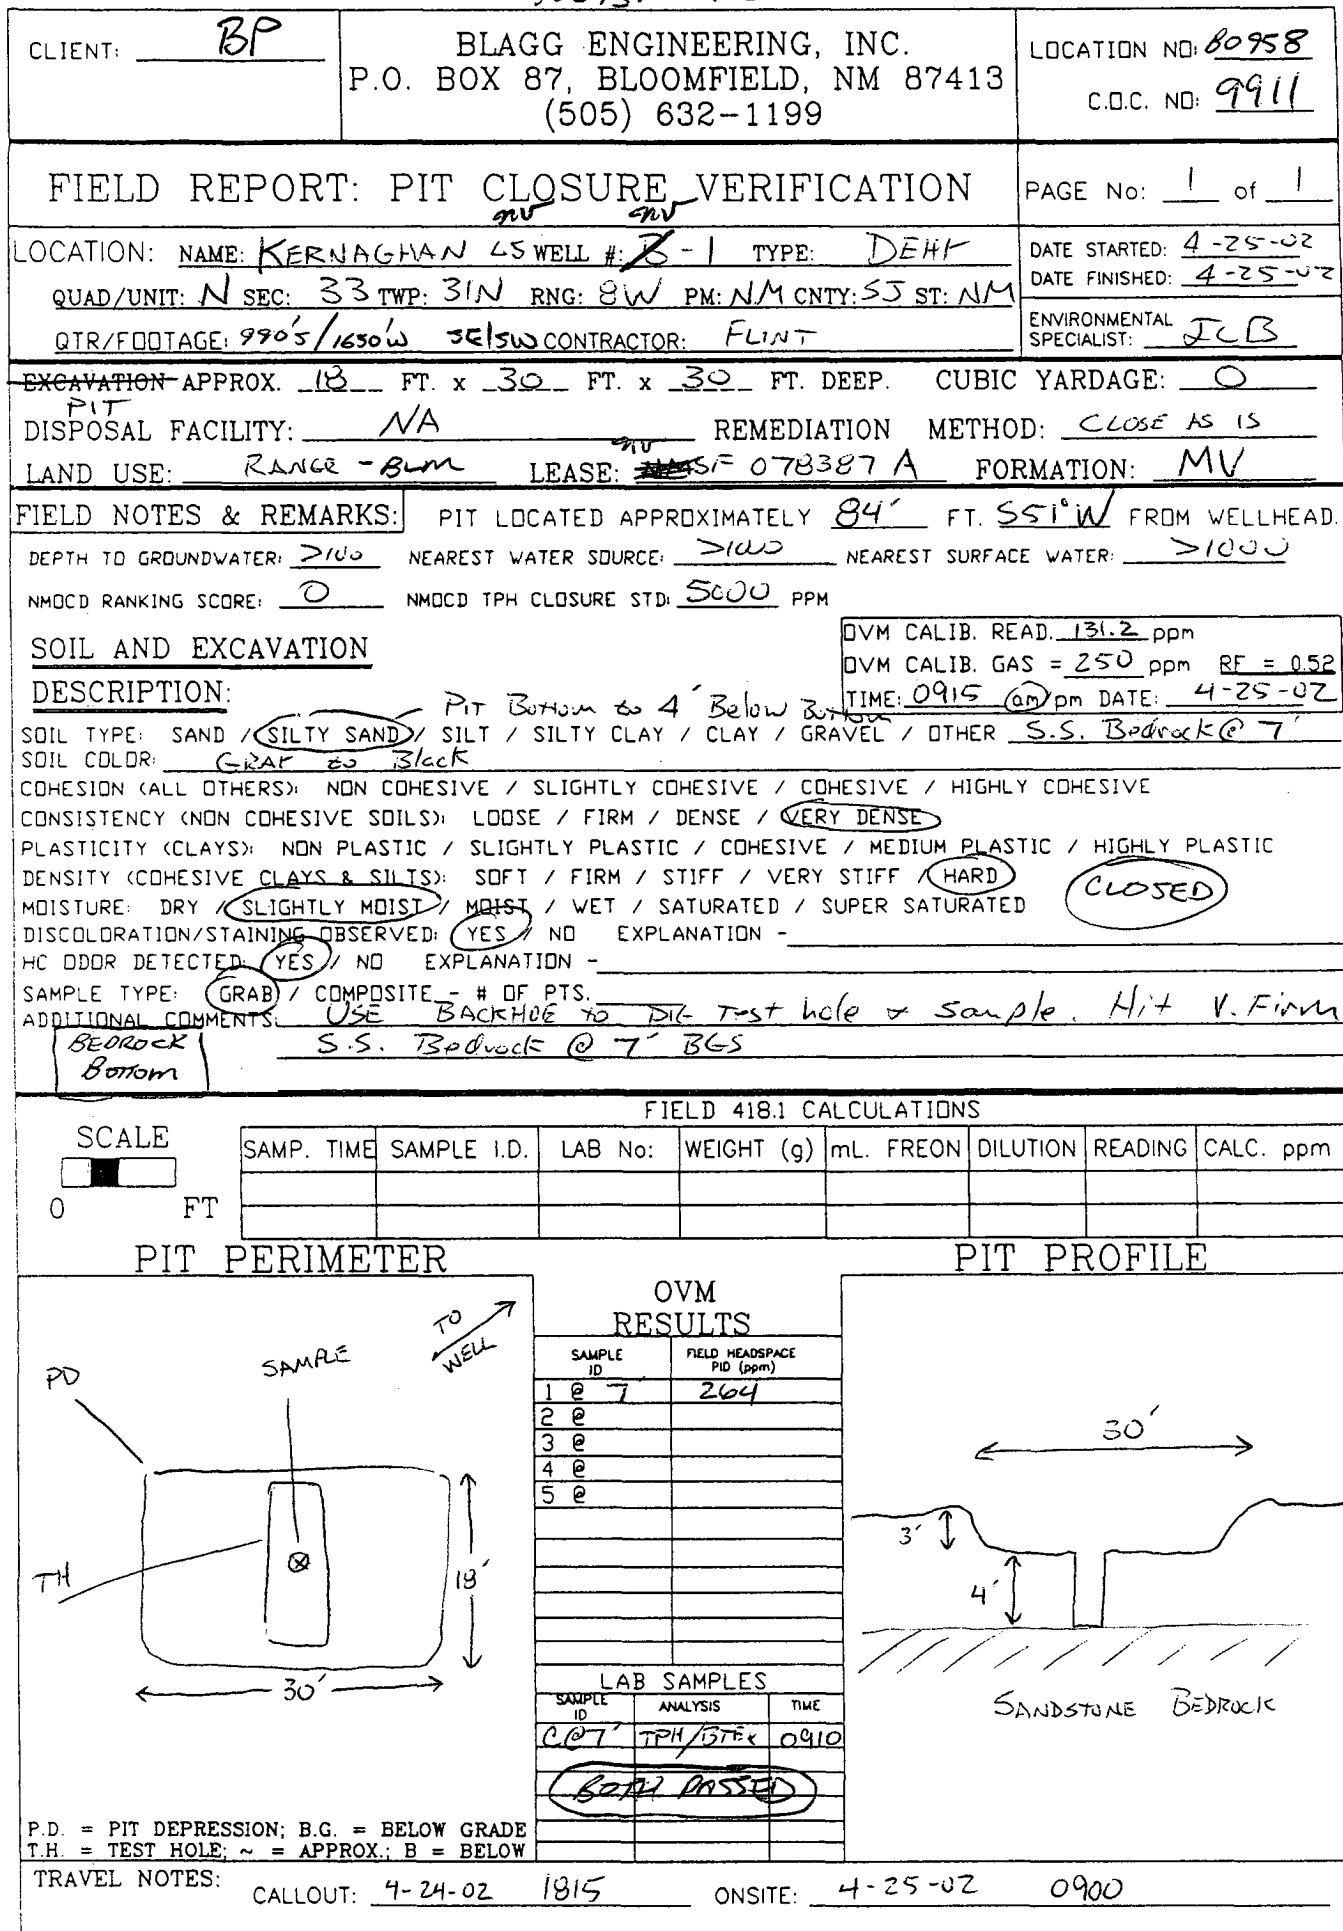 CLIENT: BP
BLAGG ENGINEERING, INC.
P.O. BOX 87, BLOOMFIELD, NM 87413
(505) 632-1199
LOCATION NO: B0958
C.O.C. NO: 9911
FIELD REPORT: PIT CLOSURE VERIFICATION
PAGE No: 1 of 1
LOCATION: NAME: KERNAGHAN LS WELL #: B-1 TYPE: DEHY
QUAD/UNIT: N SEC: 33 TWP: 31N RNG: 8W PM: NM CNTY: SJ ST: NM
QTR/FOOTAGE: 990'S/1650'W SE/SW CONTRACTOR: FLINT
DATE STARTED: 4-25-02
DATE FINISHED: 4-25-02
ENVIRONMENTAL
SPECIALIST: JCB
EXCAVATION APPROX. 18 FT. x 30 FT. x 30 FT. DEEP. CUBIC YARDAGE: 0
PIT
DISPOSAL FACILITY: NA REMEDIATION METHOD: CLOSE AS IS
LAND USE: RANGE - BLM LEASE: SF 078387 A FORMATION: MV
FIELD NOTES & REMARKS: PIT LOCATED APPROXIMATELY 84' FT. S51°W FROM WELLHEAD.
DEPTH TO GROUNDWATER: >100 NEAREST WATER SOURCE: >1000 NEAREST SURFACE WATER: >1000
NMOCD RANKING SCORE: 0 NMOCD TPH CLOSURE STD: 5000 PPM
OVM CALIB. READ. 131.2 ppm
OVM CALIB. GAS = 250 ppm RF = 0.52
TIME: 0915 am/pm DATE: 4-25-02
SOIL AND EXCAVATION
DESCRIPTION:
PIT Bottom to 4' Below Bottom
SOIL TYPE: SAND / SILTY SAND / SILT / SILTY CLAY / CLAY / GRAVEL / OTHER S.S. Bedrock @ 7'
SOIL COLOR: GRAY to Black
COHESION (ALL OTHERS): NON COHESIVE / SLIGHTLY COHESIVE / COHESIVE / HIGHLY COHESIVE
CONSISTENCY (NON COHESIVE SOILS): LOOSE / FIRM / DENSE / VERY DENSE
PLASTICITY (CLAYS): NON PLASTIC / SLIGHTLY PLASTIC / COHESIVE / MEDIUM PLASTIC / HIGHLY PLASTIC
DENSITY (COHESIVE CLAYS & SILTS): SOFT / FIRM / STIFF / VERY STIFF / HARD
CLOSED
MOISTURE: DRY / SLIGHTLY MOIST / MOIST / WET / SATURATED / SUPER SATURATED
DISCOLORATION/STAINING OBSERVED: YES / NO EXPLANATION -
HC ODOR DETECTED: YES / NO EXPLANATION -
SAMPLE TYPE: GRAB / COMPOSITE - # OF PTS.
ADDITIONAL COMMENTS: USE BACKHOE to DIG Test hole & Sample. Hit V. Firm
S.S. Bedrock @ 7' BGS
BEDROCK
Bottom
FIELD 418.1 CALCULATIONS
SCALE
0 FT
SAMP. TIME SAMPLE I.D. LAB No: WEIGHT (g) mL. FREON DILUTION READING CALC. ppm
PIT PERIMETER
PIT PROFILE
OVM
RESULTS
SAMPLE ID FIELD HEADSPACE PID (ppm)
1 @ 7' 264
2 @
3 @
4 @
5 @
TO
WELL
SAMPLE
PD
TH
18'
30'
30'
3'
4'
SANDSTONE BEDROCK
LAB SAMPLES
SAMPLE ID ANALYSIS TIME
C@7' TPH/BTEX 0910
BOTH PASSED
P.D. = PIT DEPRESSION; B.G. = BELOW GRADE
T.H. = TEST HOLE; ~ = APPROX.; B = BELOW
TRAVEL NOTES: CALLOUT: 4-24-02 1815 ONSITE: 4-25-02 0900